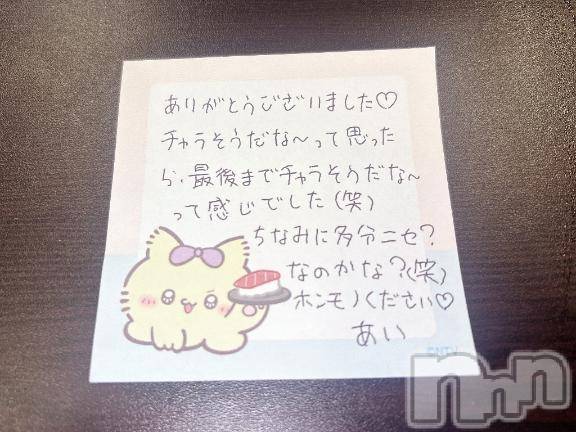 ありがとうございました♡
チャラそうだな〜って思った
ら、最後までチャラそうだな〜
って感じでした(笑)
ちなみに多分ニセ?
なのかな?(笑)
ホンモノください♡
あい
©NTV
nnn